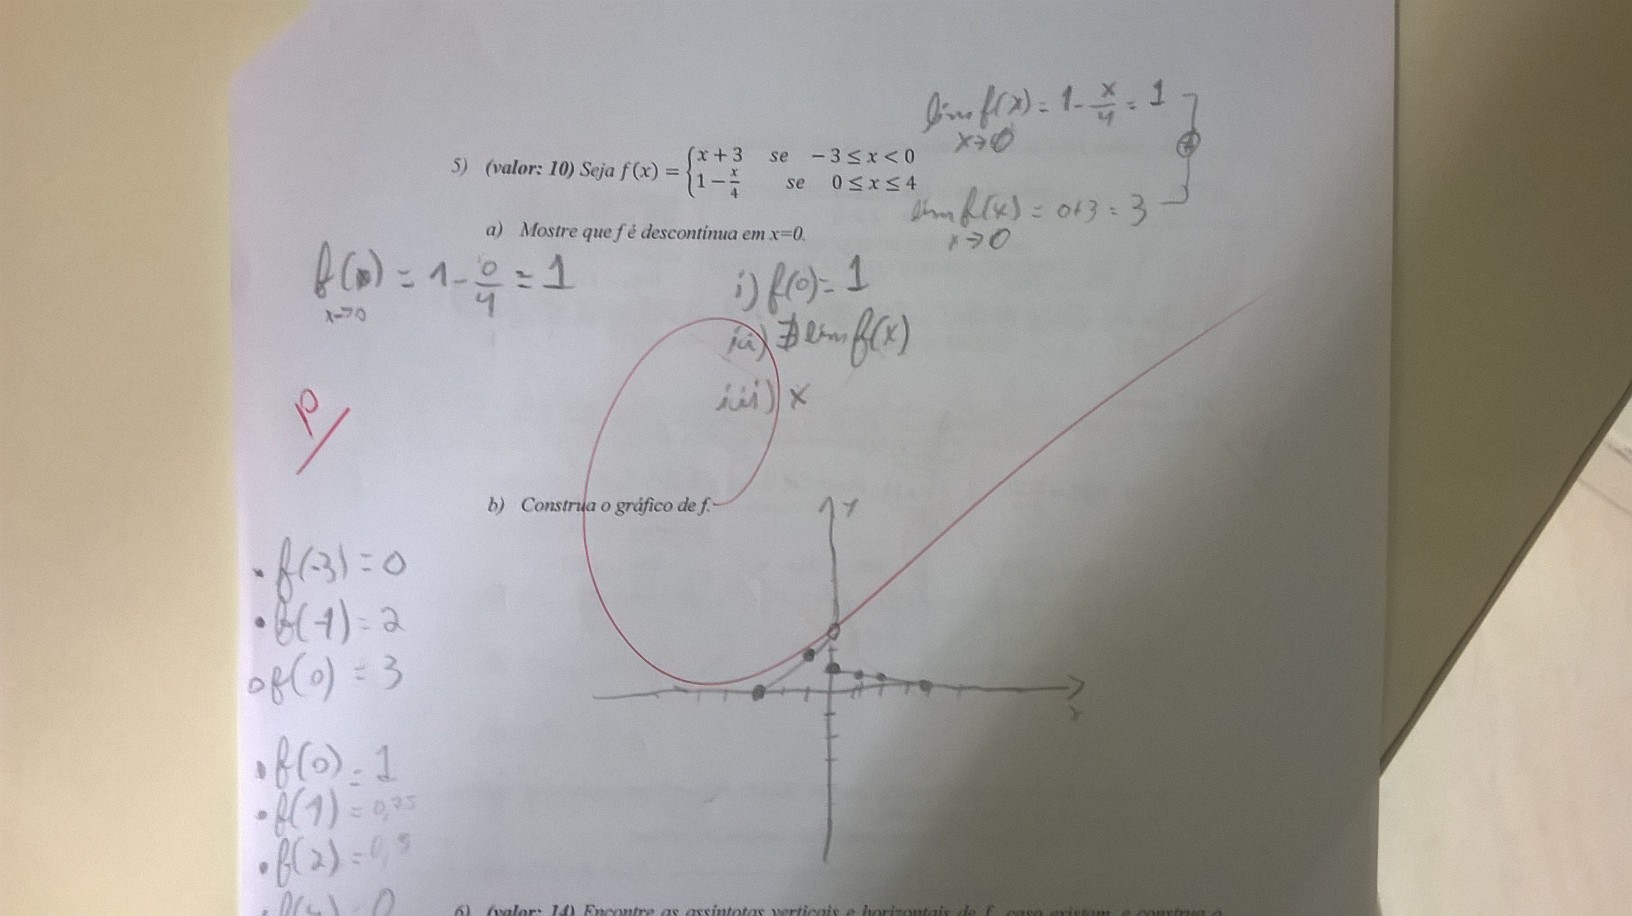 lim f(x) = 1 - x/4 = 1
x→0
5) (valor: 10) Seja f(x) = { x + 3 se − 3 ≤ x < 0
1 − x/4 se 0 ≤ x ≤ 4
lim f(x) = 0+3 = 3
x→0
a) Mostre que f é descontínua em x=0.
f(x) = 1 - 0/4 = 1
x→0
i) f(0) = 1
ii) ∄ lim f(x)
iii) x
10
b) Construa o gráfico de f.
y
• f(-3) = 0
• f(-1) = 2
o f(0) = 3
x
• f(0) = 1
• f(1) = 0,75
• f(2) = 0,5
• f(4) = 0
6) (valor: 14) Encontre as assíntotas verticais e horizontais de f, caso existam, e construa o